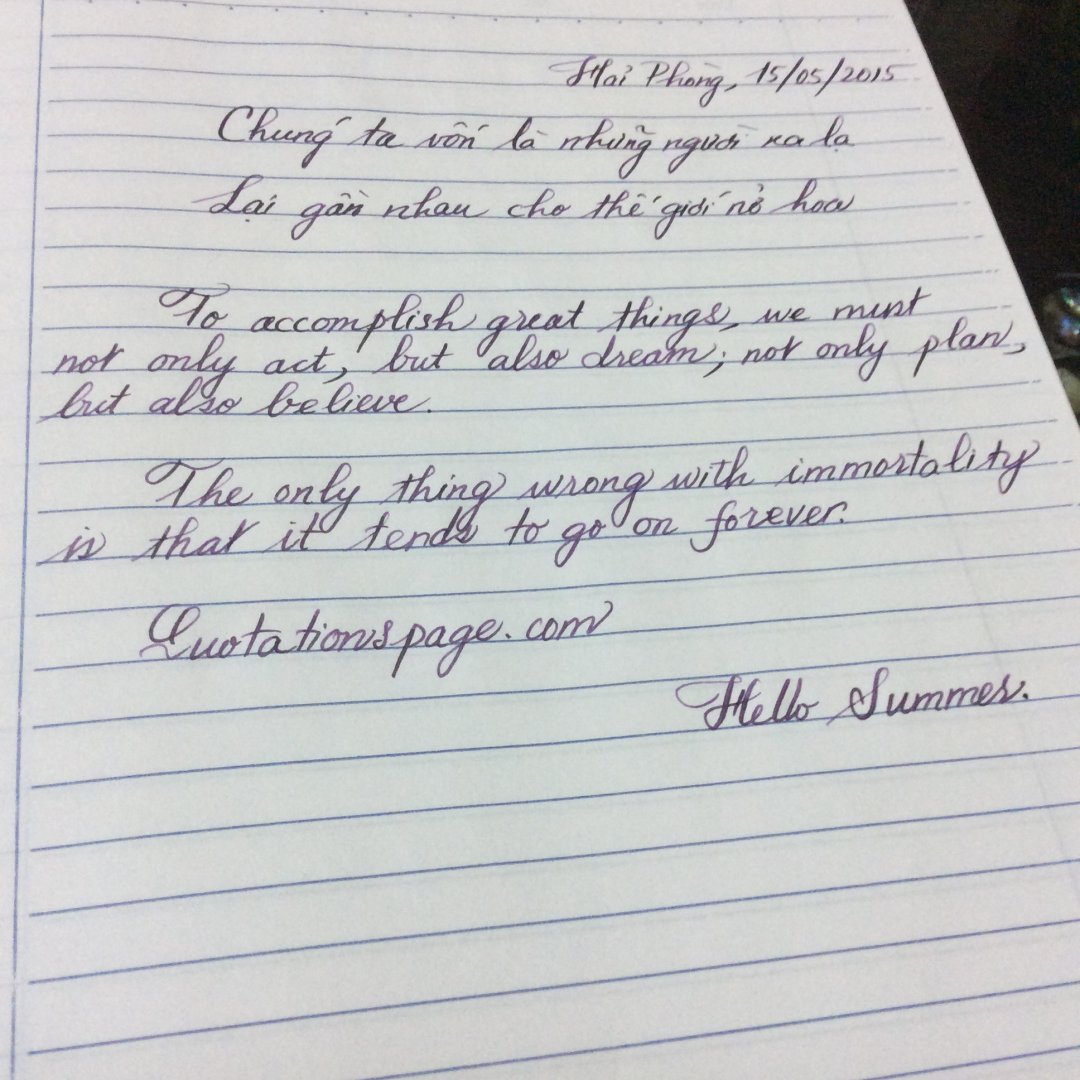 Hải Phòng, 15/05/2015
Chúng ta vốn là những người xa lạ
Lại gần nhau cho thế giới nở hoa
To accomplish great things, we must
not only act, but also dream; not only plan,
but also believe.
The only thing wrong with immortality
is that it tends to go on forever.
Quotationspage.com
Hello Summer.